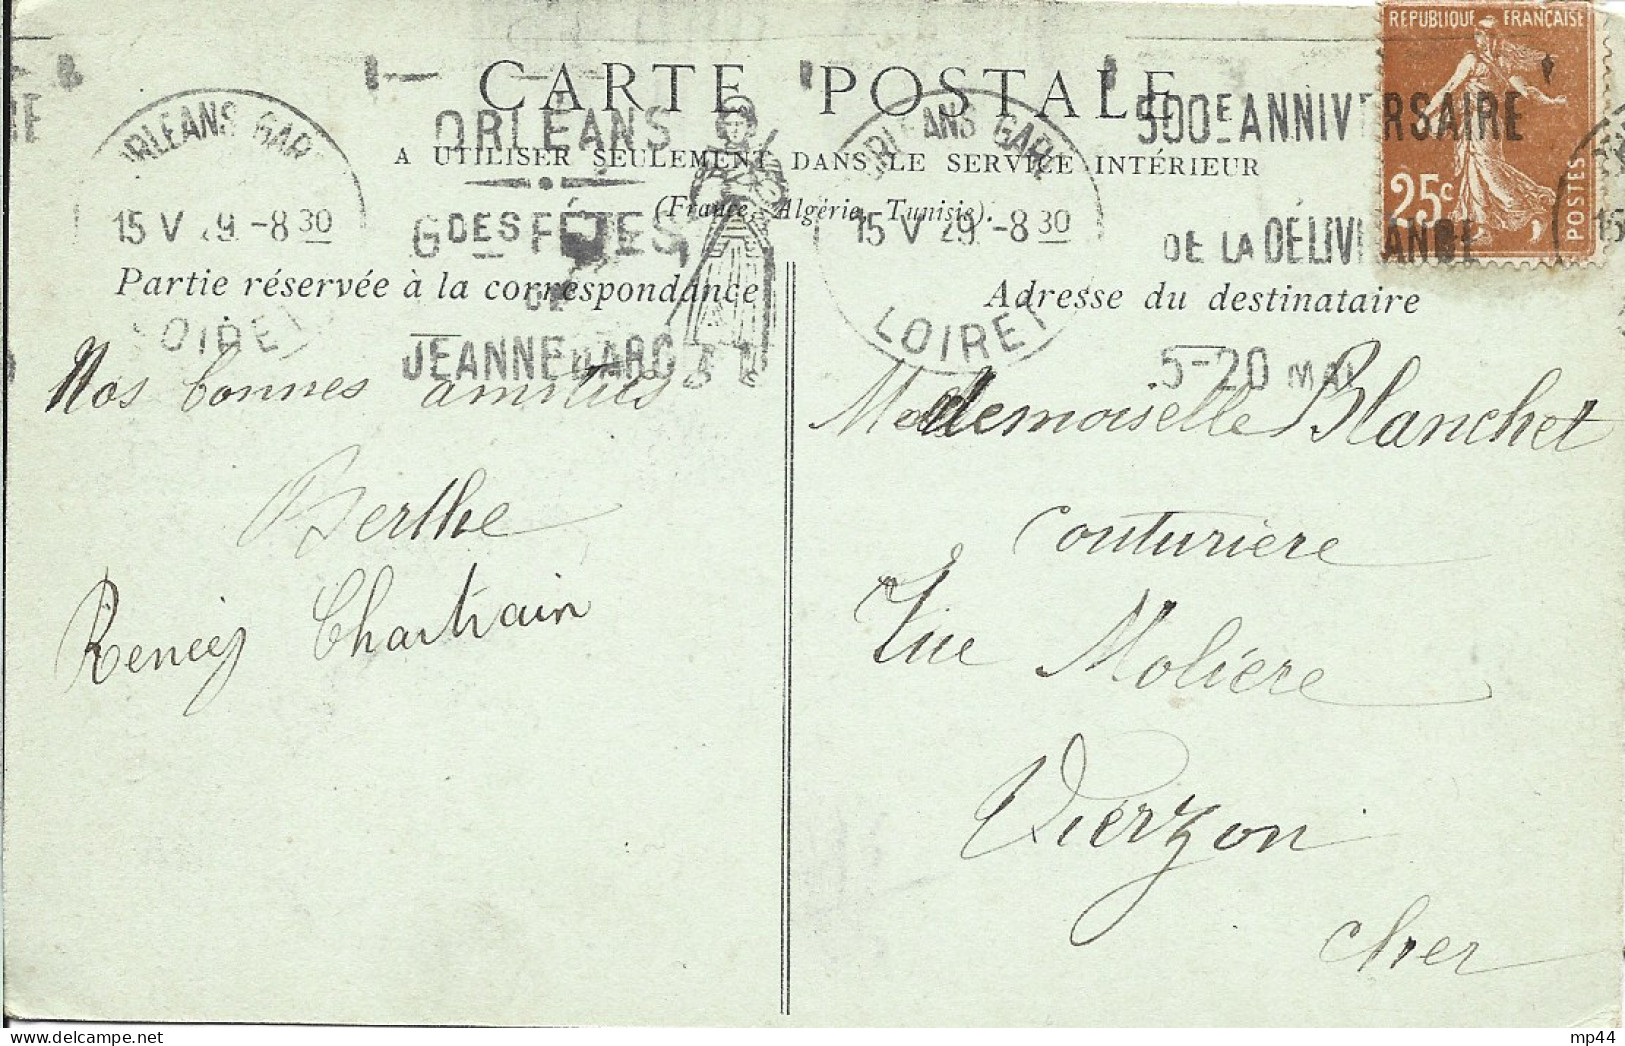 CARTE POSTALE
A UTILISER SEULEMENT DANS LE SERVICE INTÉRIEUR
(France, Algérie, Tunisie).
RÉPUBLIQUE FRANÇAISE
25c
POSTES
ORLEANS GARE
15 V 29 -8 30
LOIRET
ORLÉANS
GDES FÊTES
DE
JEANNE D'ARC
ORLEANS GARE
15 V 29 -8 30
LOIRET
500E ANNIVERSAIRE
DE LA DÉLIVRANCE
5-20 MAI
15
Partie réservée à la correspondance
Nos bonnes amitiés
Berthe
Chartrain
Adresse du destinataire
Mademoiselle Blanchet
couturiere
rue Moliere
Vierzon
cher
mp44